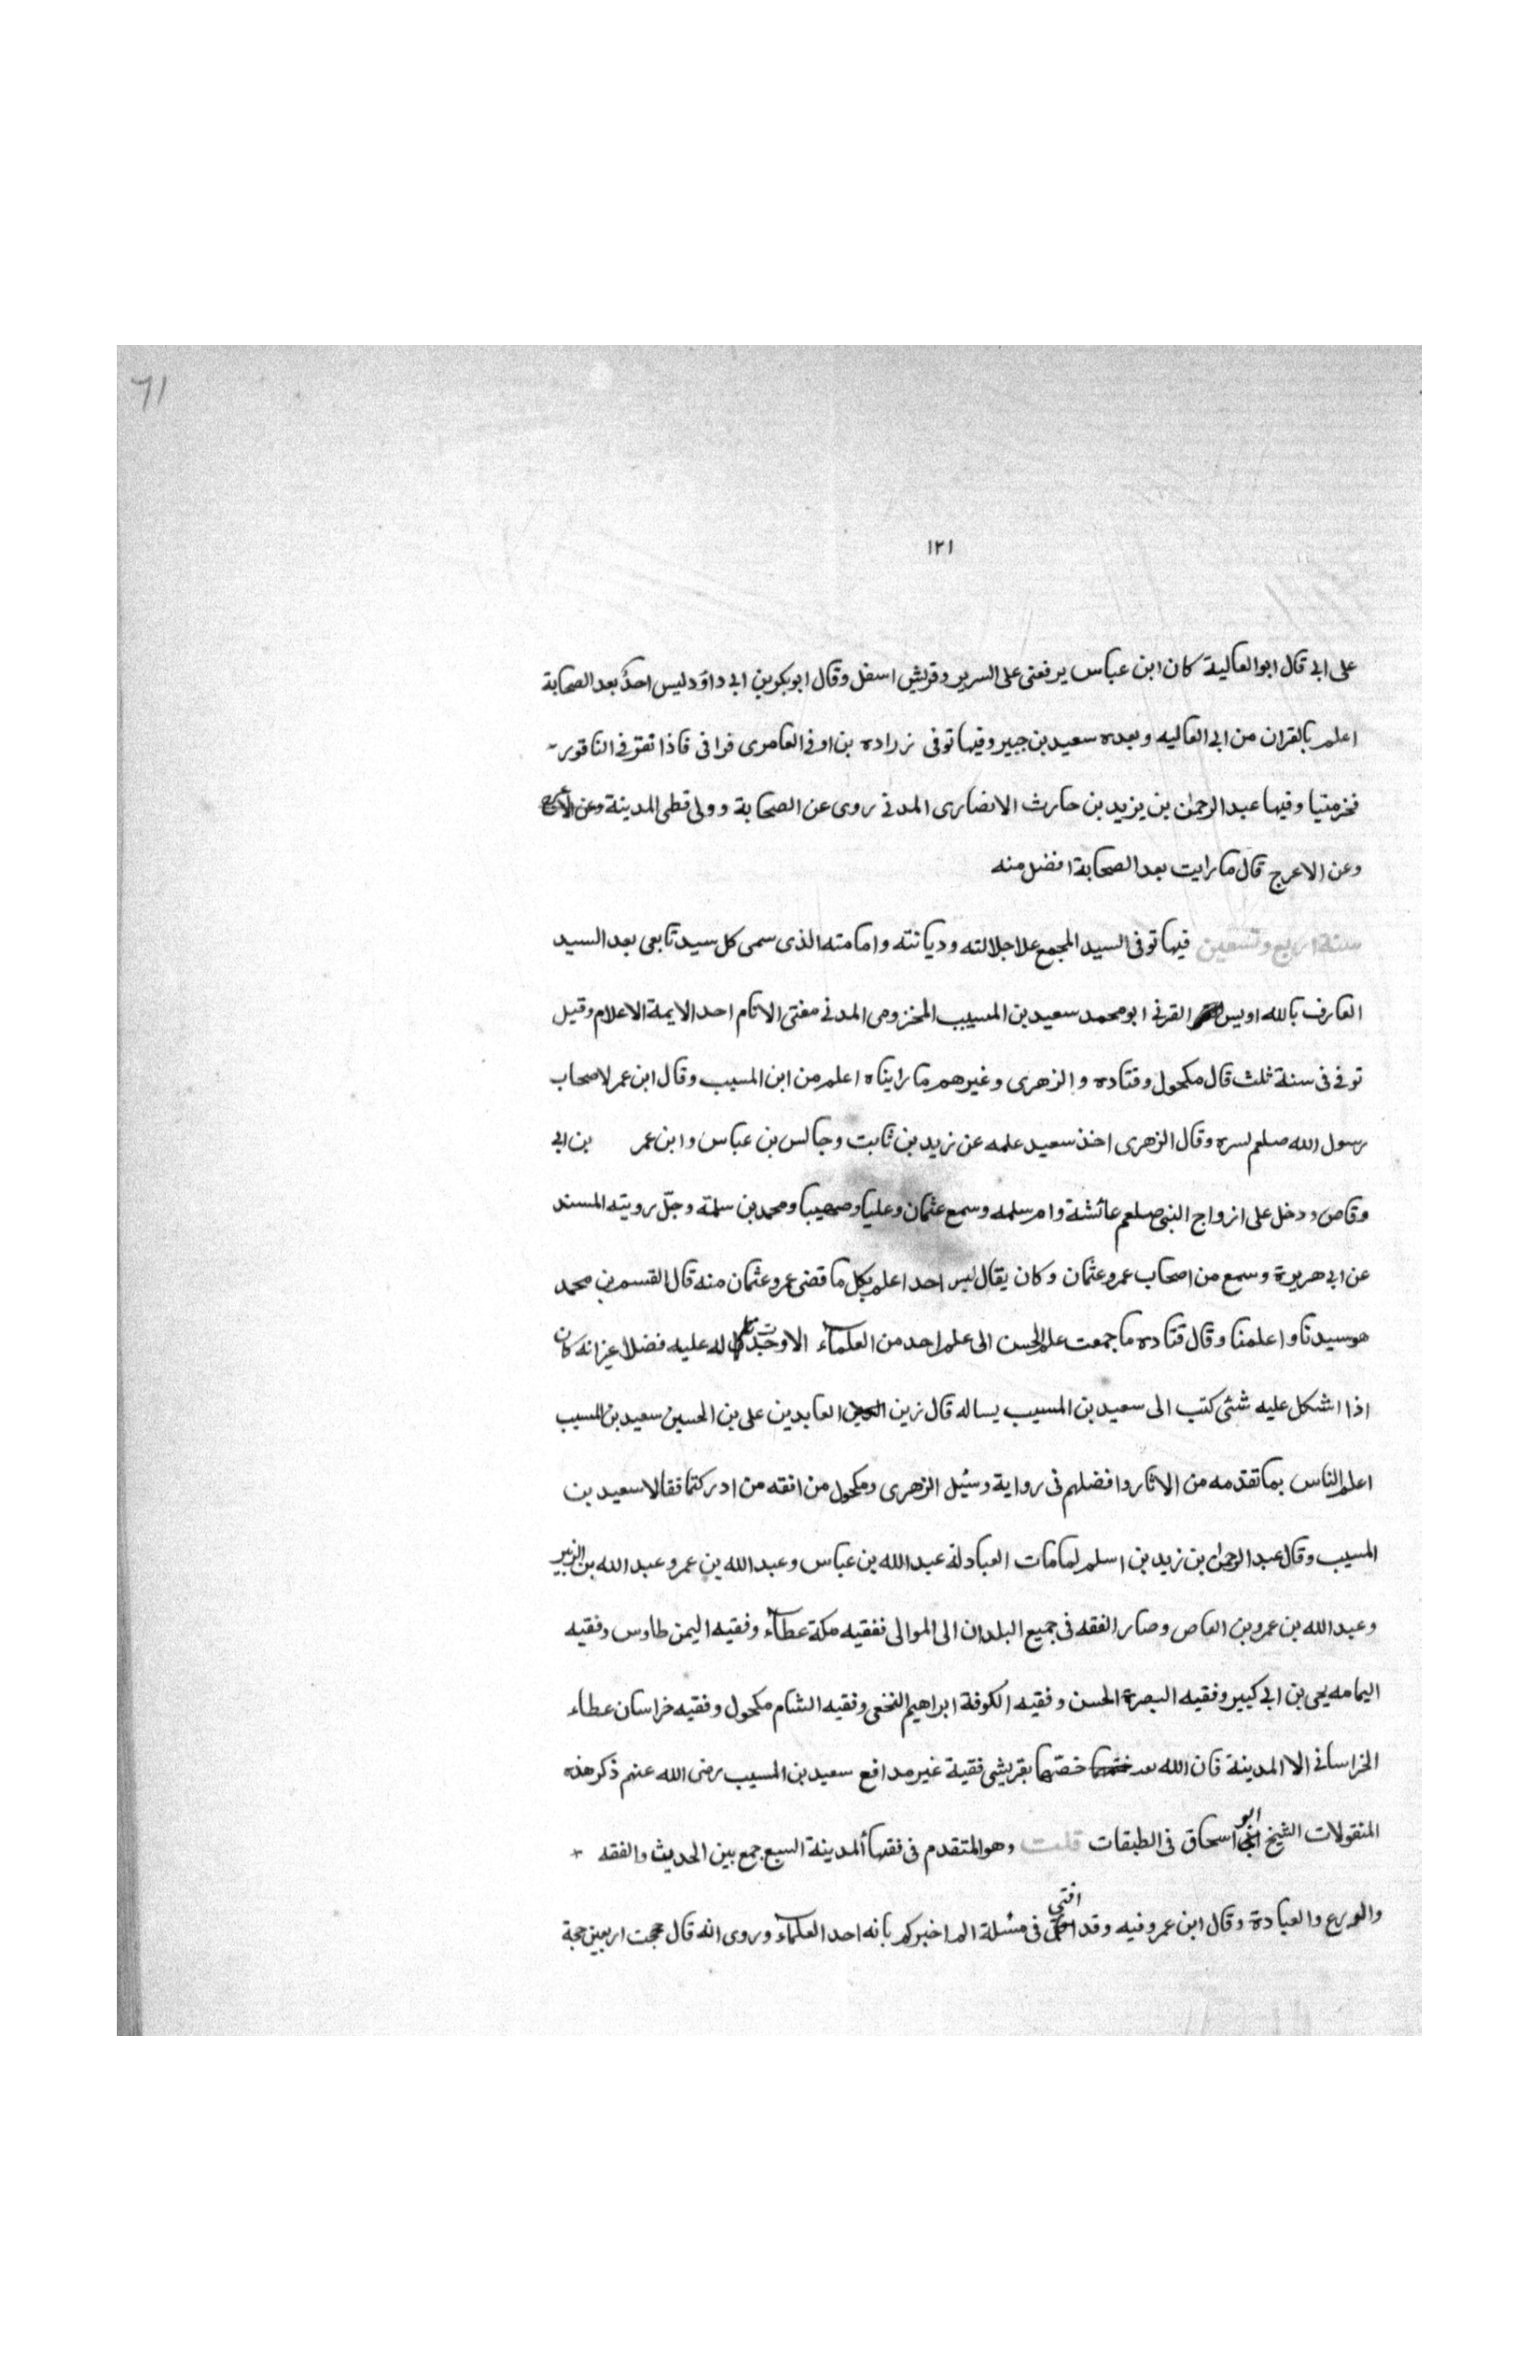 61
١٢١
على ابي قال ابوالعالية كان ابن عباس يرفعنى على السرير وقريش اسفل وقال ابوبكر بن ابى داؤد ليس احدٌ بعد الصحابة
اعلم بالقران من ابى العاليه وبعده سعيد بن جبير وفيها توفى زراده بن اوفى العامرى قرا فى فاذا نقر فى الناقور
فخر ميتا وفيها عبد الرحمن بن يزيد بن حارث الانصارى المدنى روى عن الصحابة وولى قضى المدينة وعن
وعن الاعرج قال ما رايت بعد الصحابة افضل منه
سنة اربع وتسعين فيها توفى السيد المجمع علا جلالته وديانته وامامته الذى سمى كل سيد تابعى بعد السيد
العارف بالله اويس القرنى ابو محمد سعيد بن المسيب المخزومى المدنى مفتى الانام احد الايمة الاعلام وقيل
توفى فى سنة ثلث قال مكحول وقتاده والزهرى وغيرهم ما راينا اعلم من ابن المسيب وقال ابن عمر لاصحاب
رسول الله صلعم لسره وقال الزهرى اخذ سعيد علمه عن زيد بن ثابت وجالس بن عباس وابن عمر بن ابى
وقاص ودخل على ازواج النبى صلعم عائشة وام سلمه وسمع عثمان وعليا وصهيبا ومحمد بن سلمة وجلّ رويته المسند
عن ابى هريرة وسمع من اصحاب عمر وعثمان وكان يقال ليس احد اعلم بكل ما قضى عمر وعثمان منه قال القسم بن محمد
هو سيدنا واعلمنا وقال قتاده ما جمعت علم الحسن الى علم احد من العلماء الا وجدت له عليه فضلا غير انه كان
اذا اشكل عليه شئى كتب الى سعيد بن المسيب يساله قال زين العابدين على بن الحسين سعيد بن المسيب
اعلم الناس بما تقدمه من الاثار وافضلهم فى رواية وسُيل الزهرى ومكحول من افقه من ادركتما فقالا سعيد بن
المسيب وقال عبد الرحمن بن زيد بن اسلم لما مات العبادلة عبد الله بن عباس وعبد الله بن عمر وعبد الله بن الزبير
وعبد الله بن عمرو بن العاص وصار الفقه فى جميع البلدان الى الموالى ففقيه مكة عطاء وفقيه اليمن طاوس وفقيه
اليمامه يحى بن ابى كبير وفقيه البصرة الحسن وفقيه الكوفة ابراهيم النخعى وفقيه الشام مكحول وفقيه خراسان عطاء
الخراسانى الا المدينة فان الله خصّها بقريشى فقية غير مدافع سعيد بن المسيب رضى الله عنهم ذكر هذه
المنقولات الشيخ ابو اسحاق فى الطبقات قلت وهو المتقدم فى فقهأ المدينة السبع جمع بين الحديث والفقه
والورع والعبادة وقال ابن عمر وفيه وقد افتى فى مسئلة الم اخبركم بانه احد العلماء وروى انه قال حججت اربعين حجة